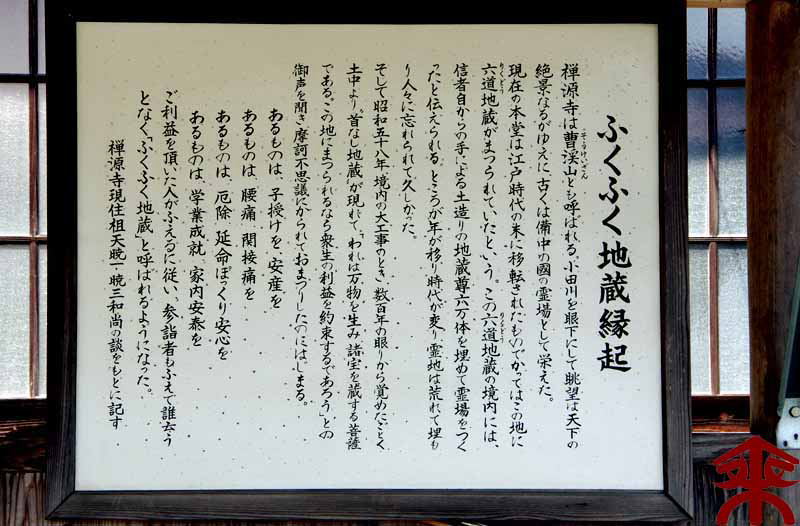 ふくふく地蔵縁起
禅源寺は曹渓山とも呼ばれる。小田川を眼下にして眺望は天下の
そうけいざん
絶景なるがゆえに、古くは備中の國の霊場として栄えた。
現在の本堂は江戸時代の末に移転されたものでかってはこの地に
六道地蔵がまつられていたという。この六道地蔵の境内には、
ろくどう
ろくどう
信者自からの手による土造りの地蔵尊六万体を埋めて霊場をつく
ったと伝えられる。ところが年が移り時代が変り霊地は荒れて埋も
り人々に忘れられて久しかった。
そして昭和五十八年、境内の大工事のとき、数百年の眠りから覚めたごとく
土中より「首なし地蔵」が現れて、「われは万物を生み諸宝を蔵する菩薩
である。この地にまつられるなら衆生の利益を約束するであろう」との
御声を聞き摩訶不思議にかられておまつりしたのにはじまる。
あるものは、子授けを、安産を
あるものは、腰痛、関接痛を
あるものは、厄除、延命ぽっくり安心を
あるものは、学業成就、家内安泰を
ご利益を頂いた人がふえるに従い、参詣者もふえて誰云う
となく「ふくふく地蔵」と呼ばれるようになった。
禅源寺現住祖天暁一暁三和尚の談をもとに記す